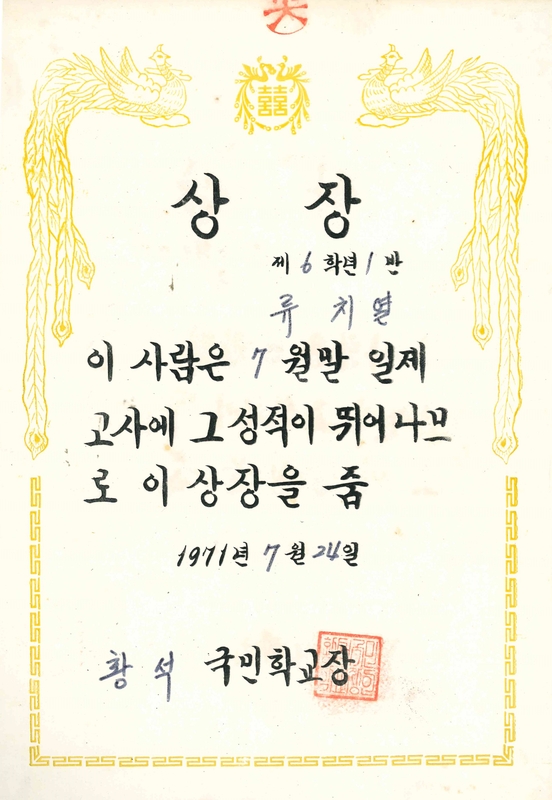 囍
상 장
제 6 학년 1 반
류 치 열
이 사람은 7 월말 일제
고사에 그 성적이 뛰어나므
로 이 상장을 줌
1971년 7월 24일
황 석 국민학교장